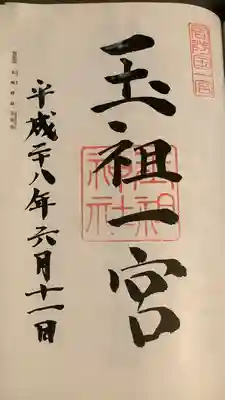 周防国一宮
玉祖一宮
玉祖神社
平成二十八年六月十一日